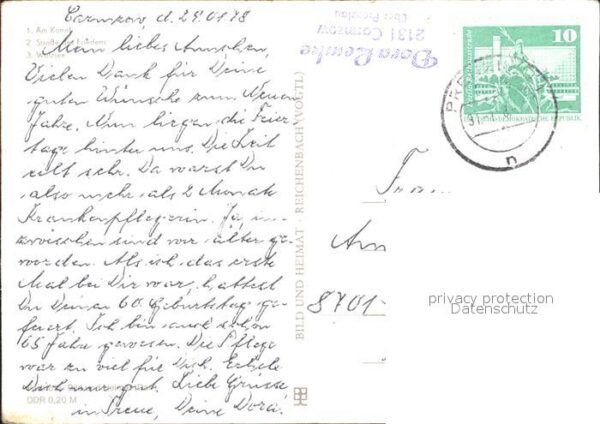 Carmzow, d. 29.01.78
1. Am Kanal
2. Straße
3. Wolfsee
Mein liebes Annchen,
Vielen Dank für Deine
guten Wünsche zum Neuen
Jahre. Nun liegen die Feier-
tage hinter uns. Die Zeit
eilt sehr. Da warst Du
also mehr als 2 Monate
Krankenpflegerin. Ja in-
zwischen sind wir älter ge-
worden. Als ich das erste
Mal bei Dir war, hattest
Du Deinen 60. Geburtstag ge-
feiert. Ich bin auch schon
65 Jahre gewesen. Die Pflege
war zu viel für Dich. Erhole
Dich nur gut. Liebe Grüsse
in Treue, Deine Dora.
DDR 0,20 M
BILD UND HEIMAT · REICHENBACH (VOGTL)
Dora Lemke
2131 Carmzow
über Prenzlau
10
DEUTSCHE DEMOKRATISCHE REPUBLIK
n
Frau
8701
privacy protection
Datenschutz